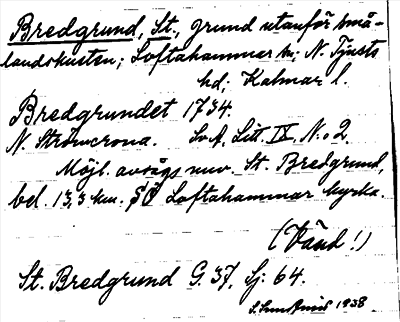 Bredgrund, St., grund utanför små-
landskusten; Loftahammar sn; N. Tjusts
hd; Kalmar l.
Bredgrundet 1734.
N. Strömcrona. SvA. Litt. IX. N:o 2.
Möjl. avsågs nuv. St. Bredgrund,
bel. 13,3 km. SÖ Loftahammar kyrka.
(Vänd!)
St. Bredgrund G. 37, Sj: 64.
1938